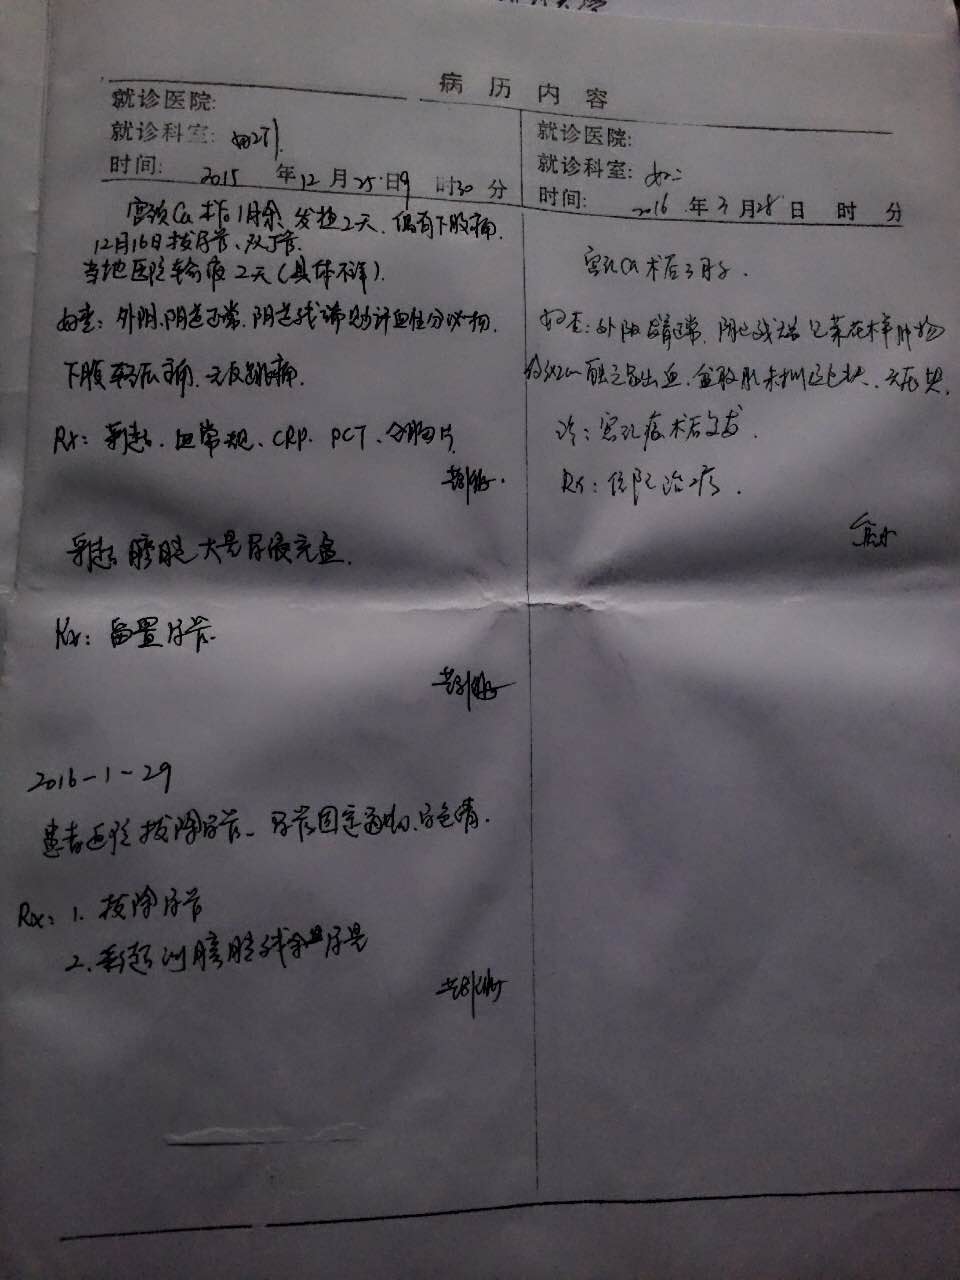 病 历 内 容
就诊医院:
就诊科室: 妇2科
时间: 2015 年 12 月 25 日 9 时 30 分
宫颈Ca术后1月余, 发热2天, 偶有下腹痛.
12月16日拔尿管、双J管.
当地医院输液2天(具体不详).
妇查: 外阴、阴道正常, 阴道残端见少许血性分泌物.
下腹轻压痛, 无反跳痛.
Rx: 彩超、血常规、CRP、PCT、
彩超 膀胱大量尿液充盈.
Rx: 留置尿管.
2016-1-29
患者返院拔除尿管. 尿管固定通畅, 尿色清.
Rx: 1. 拔除尿管
2. 彩超测膀胱残余尿量
就诊医院:
就诊科室: 妇二
时间: 2016 年 3 月 28 日 时 分
宫颈Ca术后3月余.
妇查: 外阴 正常, 阴道残端见菜花样肿物
触之易出血, 盆腔
诊: 宫颈癌术后复发.
Rx: 住院治疗.